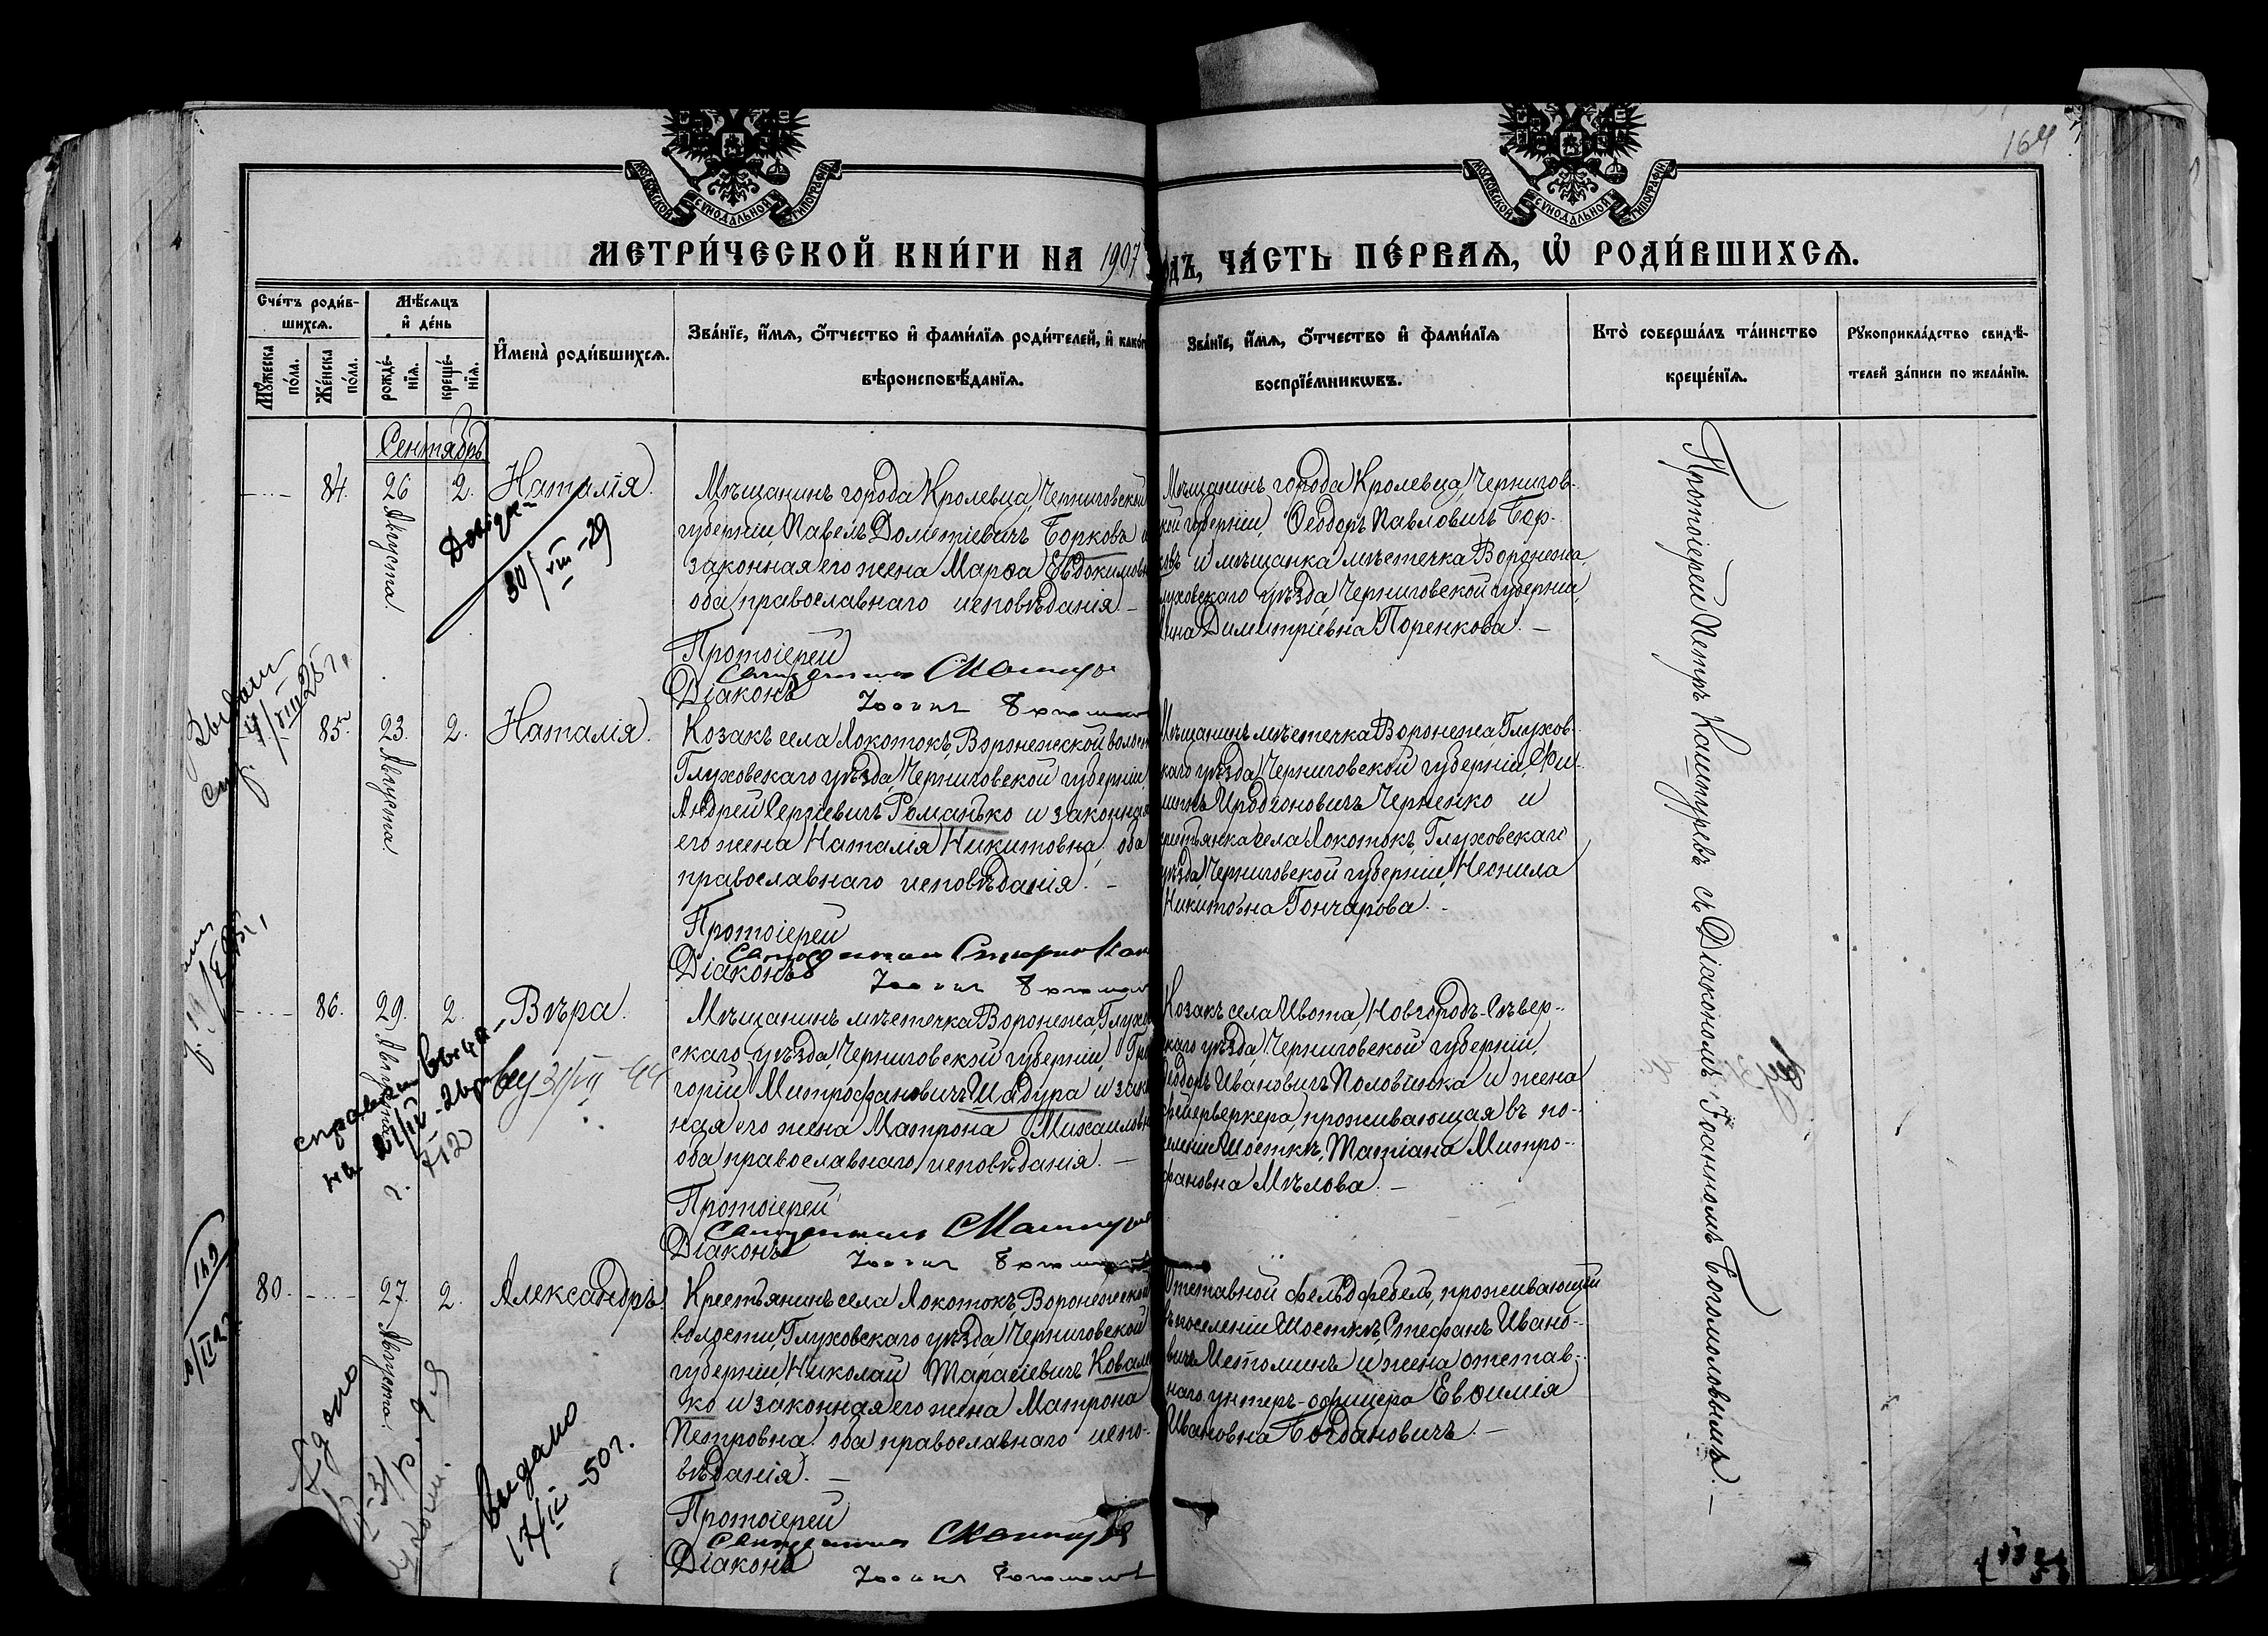 164
МОСКОВСКОЙ СУНОДАЛЬНОЙ ТИПОГРАФІИ
МОСКОВСКОЙ СУНОДАЛЬНОЙ ТИПОГРАФІИ
МЕТРИ́ЧЕСКОЙ КНИ́ГИ НА 1907
ОДЪ, ЧА́СТЬ ПЕ́РВАѦ, Ѡ҆ РОДИ́ВШИХСѦ.
Сче́тъ роди́в-
шихсѧ.
Мꙋ́жеска по́ла.
Же́нска по́ла.
Мѣ́сѧцъ
и҆ де́нь
рожде́-
нїѧ.
креще́-
нїѧ.
И҆мена̀ роди́вшихсѧ.
Зва́нїе, и҆́мѧ, ѻ҆́тчество и҆ фами́лїѧ роди́телей, и҆ како́г
вѣроисповѣ́данїѧ.
Зва́нїе, и҆́мѧ, ѻ҆́тчество и҆ фами́лїѧ
воспрїе́мникѡвъ.
Кто̀ соверша́лъ та́инство
креще́нїѧ.
Рꙋкоприкла́дство свидѣ́-
телей за́писи по жела́нїю.
Сентябрь
84. 26 Августа. 2. Наталія.
30/VIII-29
Мѣщанинъ города Кролевца, Черниговской
губерніи, Павелъ Дометіевичъ Борковъ и
законная его жена Марѳа Евдокимовн
оба православнаго исповѣданія. –
Протоіерей
Діаконъ
Мѣщанинъ города Кролевца, Чернигов-
кой губерніи, Ѳеодоръ Павловичъ Бор-
ковъ и мѣщанка мѣстечка Воронежа,
луховскаго уѣзда Черниговской губерніи,
Анна Димитріевна Поренкова. –
85. 23. Августа. 2. Наталія.
Козакъ села Локотокъ, Воронежской волост
Глуховскаго уѣзда, Черниговской губерніи,
Андрей Сергіевичъ Романько и законная
его жена Наталія Никитовна, оба
православнаго исповѣданія. –
Протоіерей
Діаконъ
Мѣщанинъ мѣстечка Воронежа, Глухов-
скаго уѣзда, Черниговской губерніи, Фи-
липпъ Иродіоновичъ Черненко и
крестьянка села Локотокъ, Глуховскаго
уѣзда, Черниговской губерніи, Неонила
Никитовна Гончарова. –
86. 29. Августа. 2. Вѣра.
Мѣщанинъ мѣстечка Воронежа, Глухов
скаго уѣзда, Черниговской губерніи, Гри
горій Митрофановичъ Шадура и зако
ная его жена Матрона Михаиловн
оба православнаго исповѣданія. –
Протоіерей
Діаконъ
Козакъ села Ивота, Новгородъ-Сѣвер-
скаго уѣзда, Черниговской губерніи,
Ѳеодоръ Ивановичъ Половинка и жена
фейерверкера, проживающая въ по-
селеніи Шосткѣ, Татіана Митро-
фановна Мѣлова. –
80. 27. Августа. 2. Александръ.
Выдано
17/IV-50 г.
Крестьянинъ села Локотокъ, Воронежской
волости, Глуховскаго уѣзда, Черниговской
губерніи, Николай Тарасіевичъ Ковален
ко и законная его жена Матрона
Петровна, оба православнаго испо-
вѣданія. –
Протоіерей
Діаконъ
Отставной фельдфебель, проживающій
въ поселеніи Шосткѣ, Стефанъ Ивано-
вичъ Истоминъ и жена отстав-
наго унтеръ-офицера Евѳимія
Ивановна Богдановичъ. –
Протоіерей Петръ Каштуревъ съ Діакономъ Іоанномъ Богомоловымъ. –